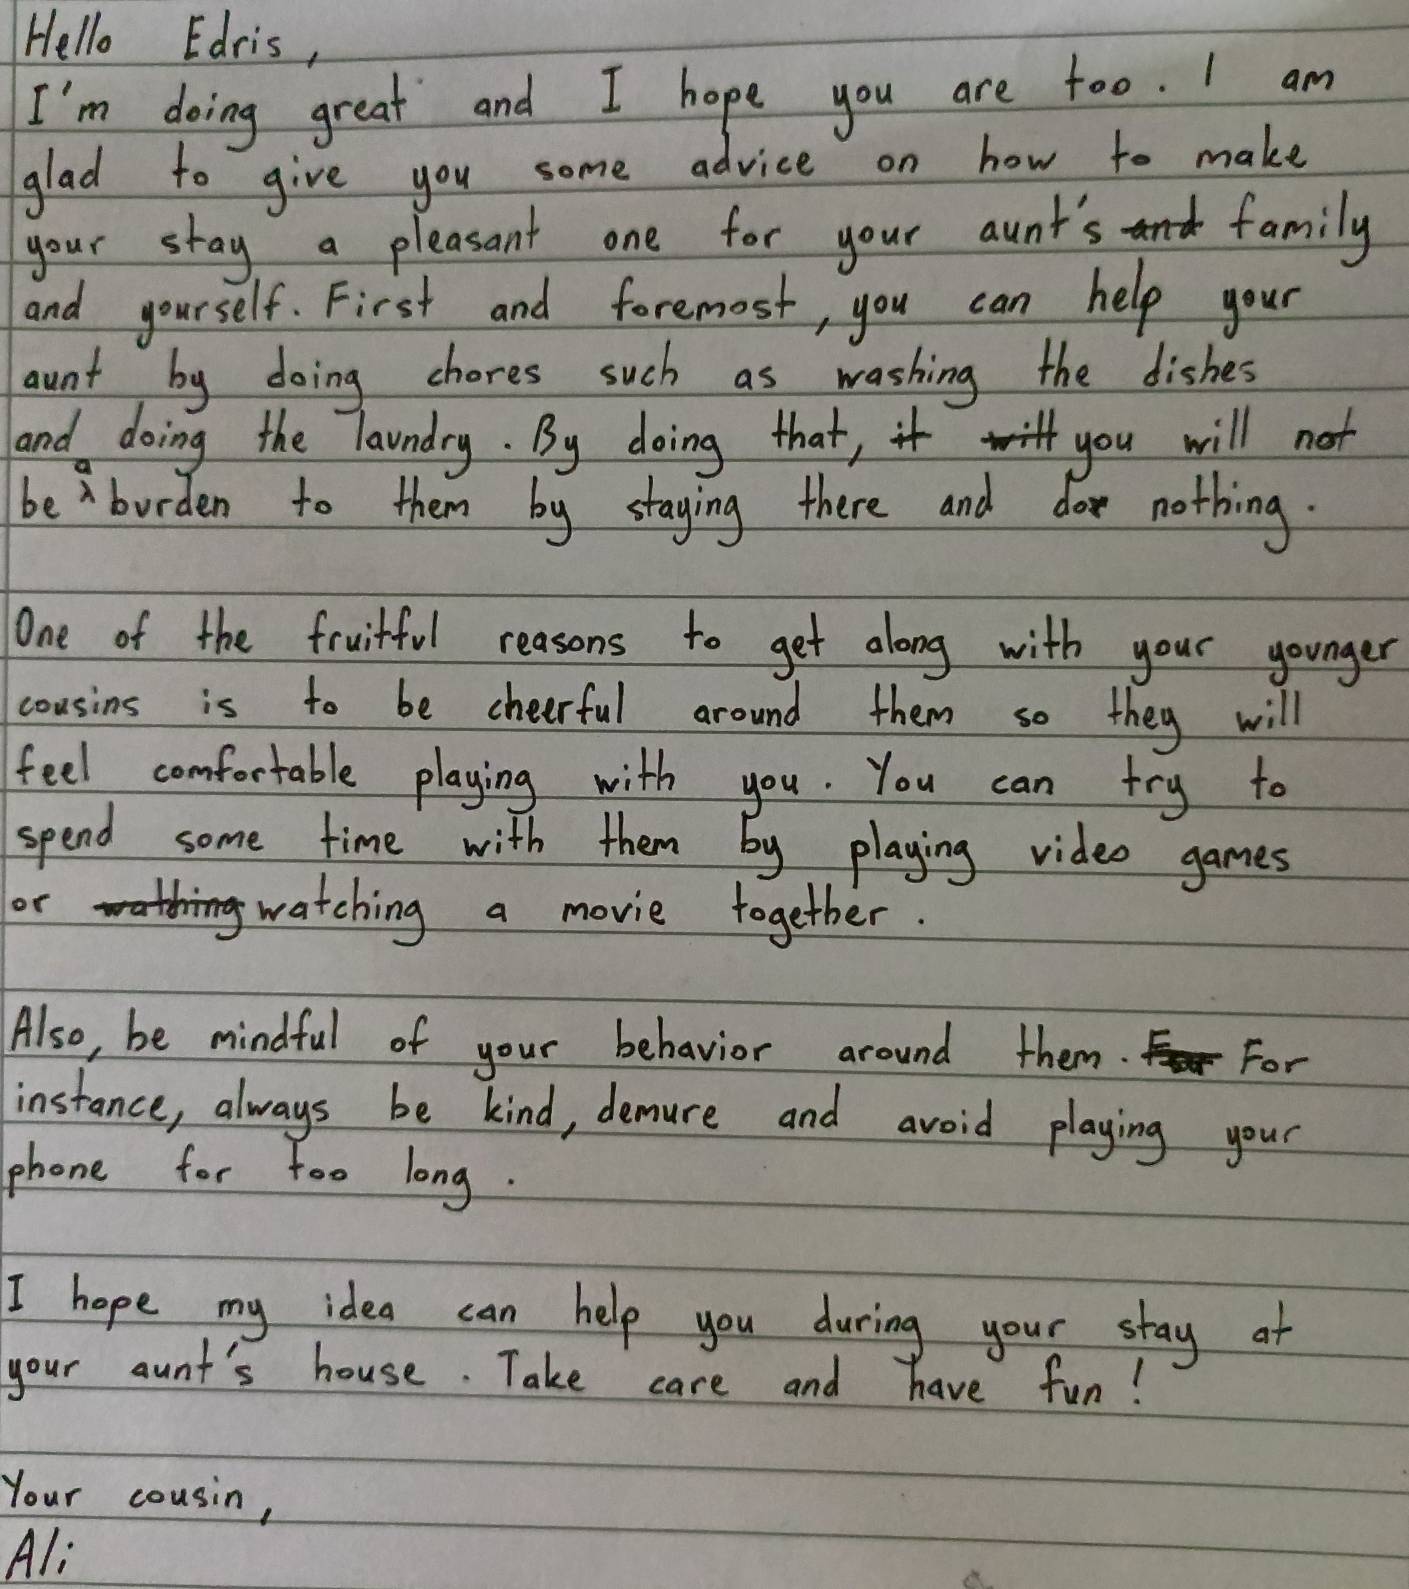 Hello Edris,
I'm doing great and I hope you are too. I am
glad to give you some advice on how to make
your stay a pleasant one for your aunt's and family
and yourself. First and foremost, you can help your
aunt by doing chores such as washing the dishes
and doing the laundry. By doing that, it will you will not
be a burden to them by staying there and do nothing.
One of the fruitful reasons to get along with your younger
cousins is to be cheerful around them so they will
feel comfortable playing with you. You can try to
spend some time with them by playing video games
or wathing watching a movie together.
Also, be mindful of your behavior around them. For
instance, always be kind, demure and avoid playing your
phone for too long.
I hope my idea can help you during your stay at
your aunt's house. Take care and have fun!
Your cousin,
Ali